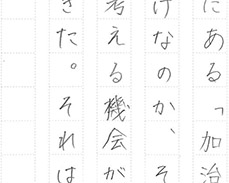 にある「加治
けなのか、そ
考える機会が
きた。それは